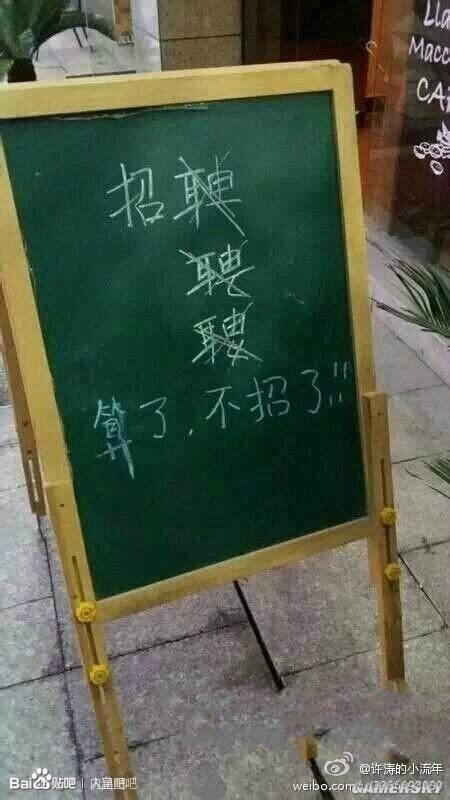 Lla
Macc
招聘
聘
聘
算了，不招了!!!
Bai贴吧 | 内涵图吧
@许涛的小流年
weibo.com
GAMERSKY